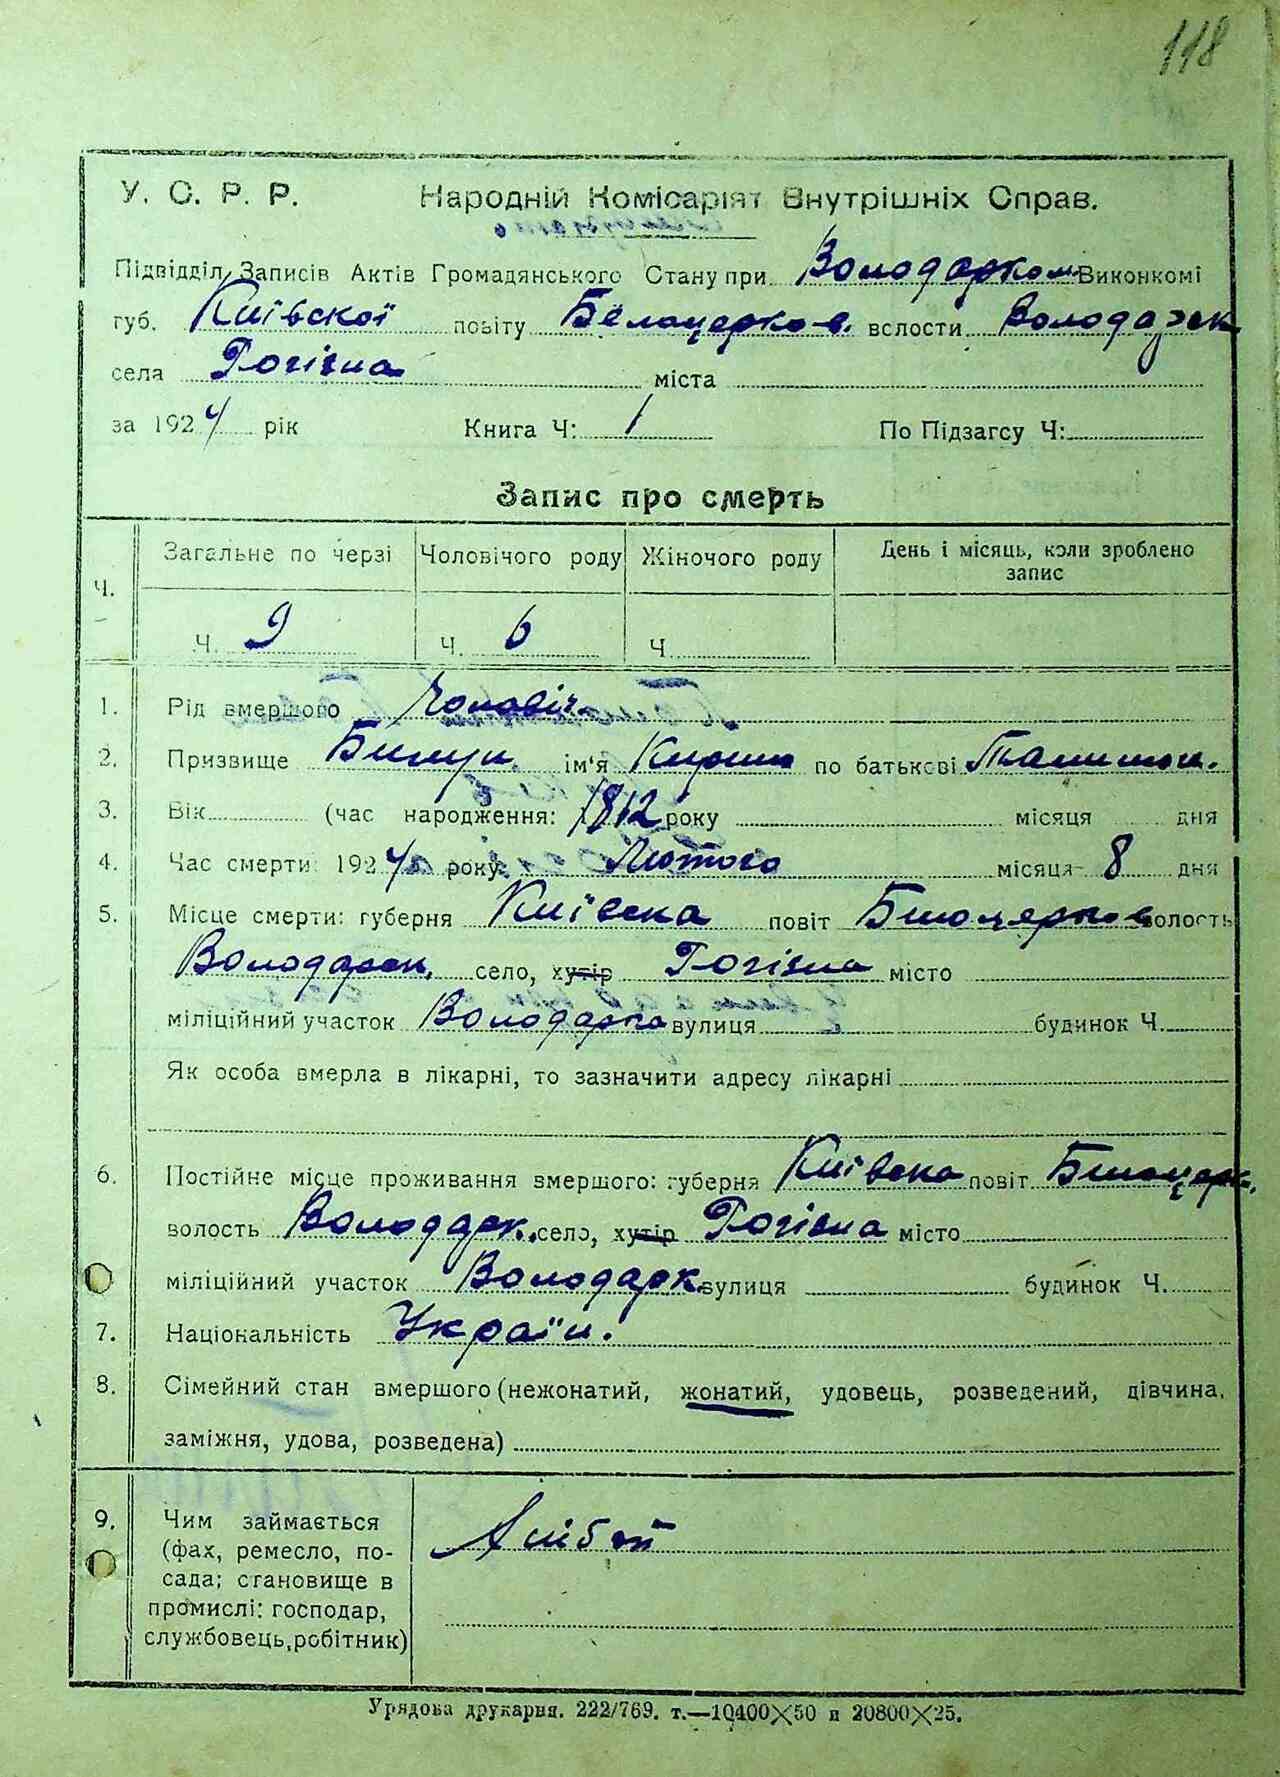 118
У. С. Р. Р. Народній Комісаріят Внутрішніх Справ.
Підвідділ Записів Актів Громадянського Стану при Володарком Виконкомі
губ. Київскої повіту Белоцерков. вслости Володарск
села Рогізна міста
за 1924 рік Книга Ч: 1 По Підзагсу Ч:
Запис про смерть
Ч. Загальне по черзі Чоловічого роду Жіночого роду День і місяць, коли зроблено запис
Ч. 9 Ч. 6 Ч.
1. Рід вмершого Чоловіч.
2. Призвище ім'я по батькові
3. Вік (час народження: 1812 року місяця дня
4. Час смерти: 1924 року Лютого місяця 8 дня
5. Місце смерти: губерня Київска повіт Билоцерков волость
Володарск. село, хутір Рогізна місто
міліційний участок Володарка вулиця будинок Ч.
Як особа вмерла в лікарні, то зазначити адресу лікарні
6. Постійне місце проживання вмершого: губерня Київска повіт Билоцерк.
волость Володарк. село, хутір Рогізна місто
міліційний участок Володарк. вулиця будинок Ч.
7. Національність Україн.
8. Сімейний стан вмершого (нежонатий, жонатий, удовець, розведений, дівчина,
заміжня, удова, розведена)
9. Чим займається
(фах, ремесло, по-
сада; становище в
промислі: господар,
службовець, робітник)
Урядова друкарня. 222/769. т.—10400X50 и 20800X25.